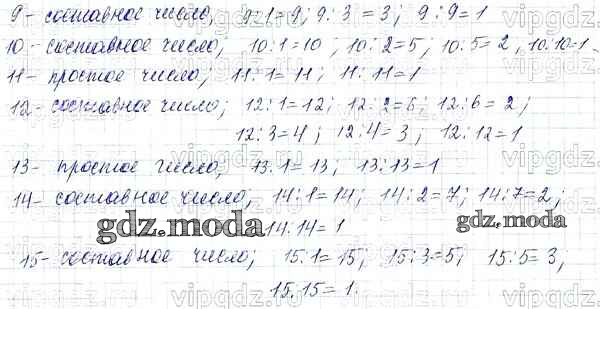 9 - составное число, 9:1=9; 9:3=3; 9:9=1
10 - составное число, 10:1=10; 10:2=5; 10:5=2, 10:10=1.
11 - простое число; 11:1=11; 11:11=1
12 - составное число; 12:1=12; 12:2=6; 12:6=2;
12:3=4; 12:4=3; 12:12=1
13 - простое число, 13:1=13; 13:13=1
14 - составное число, 14:1=14; 14:2=7; 14:7=2;
14:14=1
gdz.moda
gdz.moda
15 - составное число; 15:1=15; 15:3=5; 15:5=3;
15:15=1.